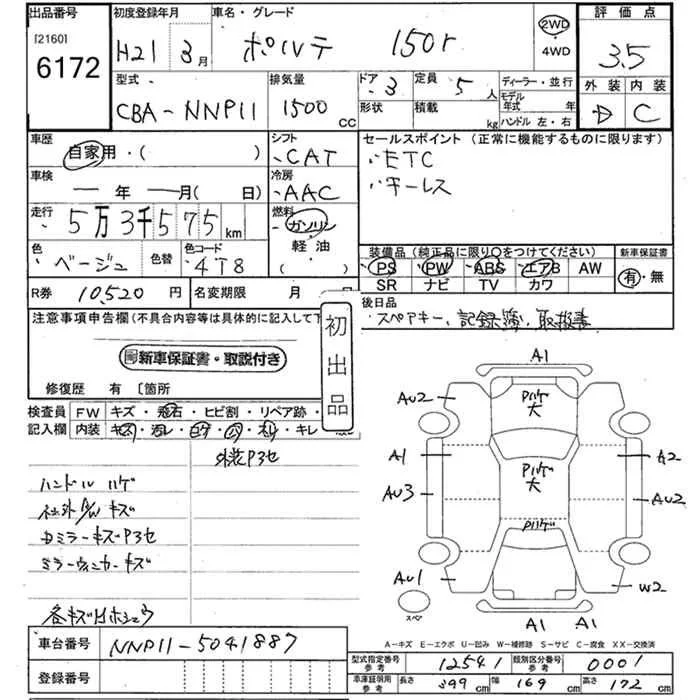 出品番号 初度登録年月 車名・グレード 評価点
[2160] 6172 H21 3月 ポルテ 150r 2WD 4WD 3.5
型式 排気量 ドア 3 定員 5人 ディーラー・並行 外装 内装
CBA-NNP11 1500cc 形状 積載 kg モデル年式 年 ハンドル 左・右 D C
車歴 シフト セールスポイント (正常に機能するものに限ります)
自家用・( ) CAT ・ETC
車検 冷房 ・キーレス
― 年 ― 月( 日) AAC
走行 5万3千575km 燃料 ガソリン
軽油 ( )
色 ベージュ 色替 色コード 4T8
装備品 (純正品に限り○をつけてください) 新車保証書
PS PW ABS エアB AW 有・無
SR ナビ TV カワ
R券 10,520円 名変期限 月
後日品
・スペアキー、記録簿、取扱書
注意事項申告欄(不具合内容等は具体的に記入して下
初出品
新車保証書・取説付き
修復歴 有 [箇所
検査員 FW キズ・飛石・ヒビ割・リペア跡・
記入欄 内装 キズ・汚レ・コゲ・穴・スレ・キレ
外装P3セ
ハンドル ハゲ
社外AW キズ
ドミラーキズP3セ
ミラーウィンカーキズ
各キズH ホシュウ
A1
AU2 Pハゲ 大
A1 Pハゲ 大 A2
AU3 AU2
Pハゲ
AU1 W2
スペア
A1 A1
A－キズ E－エクボ U－凹み W－補修跡 S－サビ C－腐食 XX－交換済
車台番号 NNP11-5041887
登録番号
型式指定番号 参考 12541 類別区分番号 参考 0001
車庫証明用 参考 長さ 399cm 幅 169cm 高さ 172cm